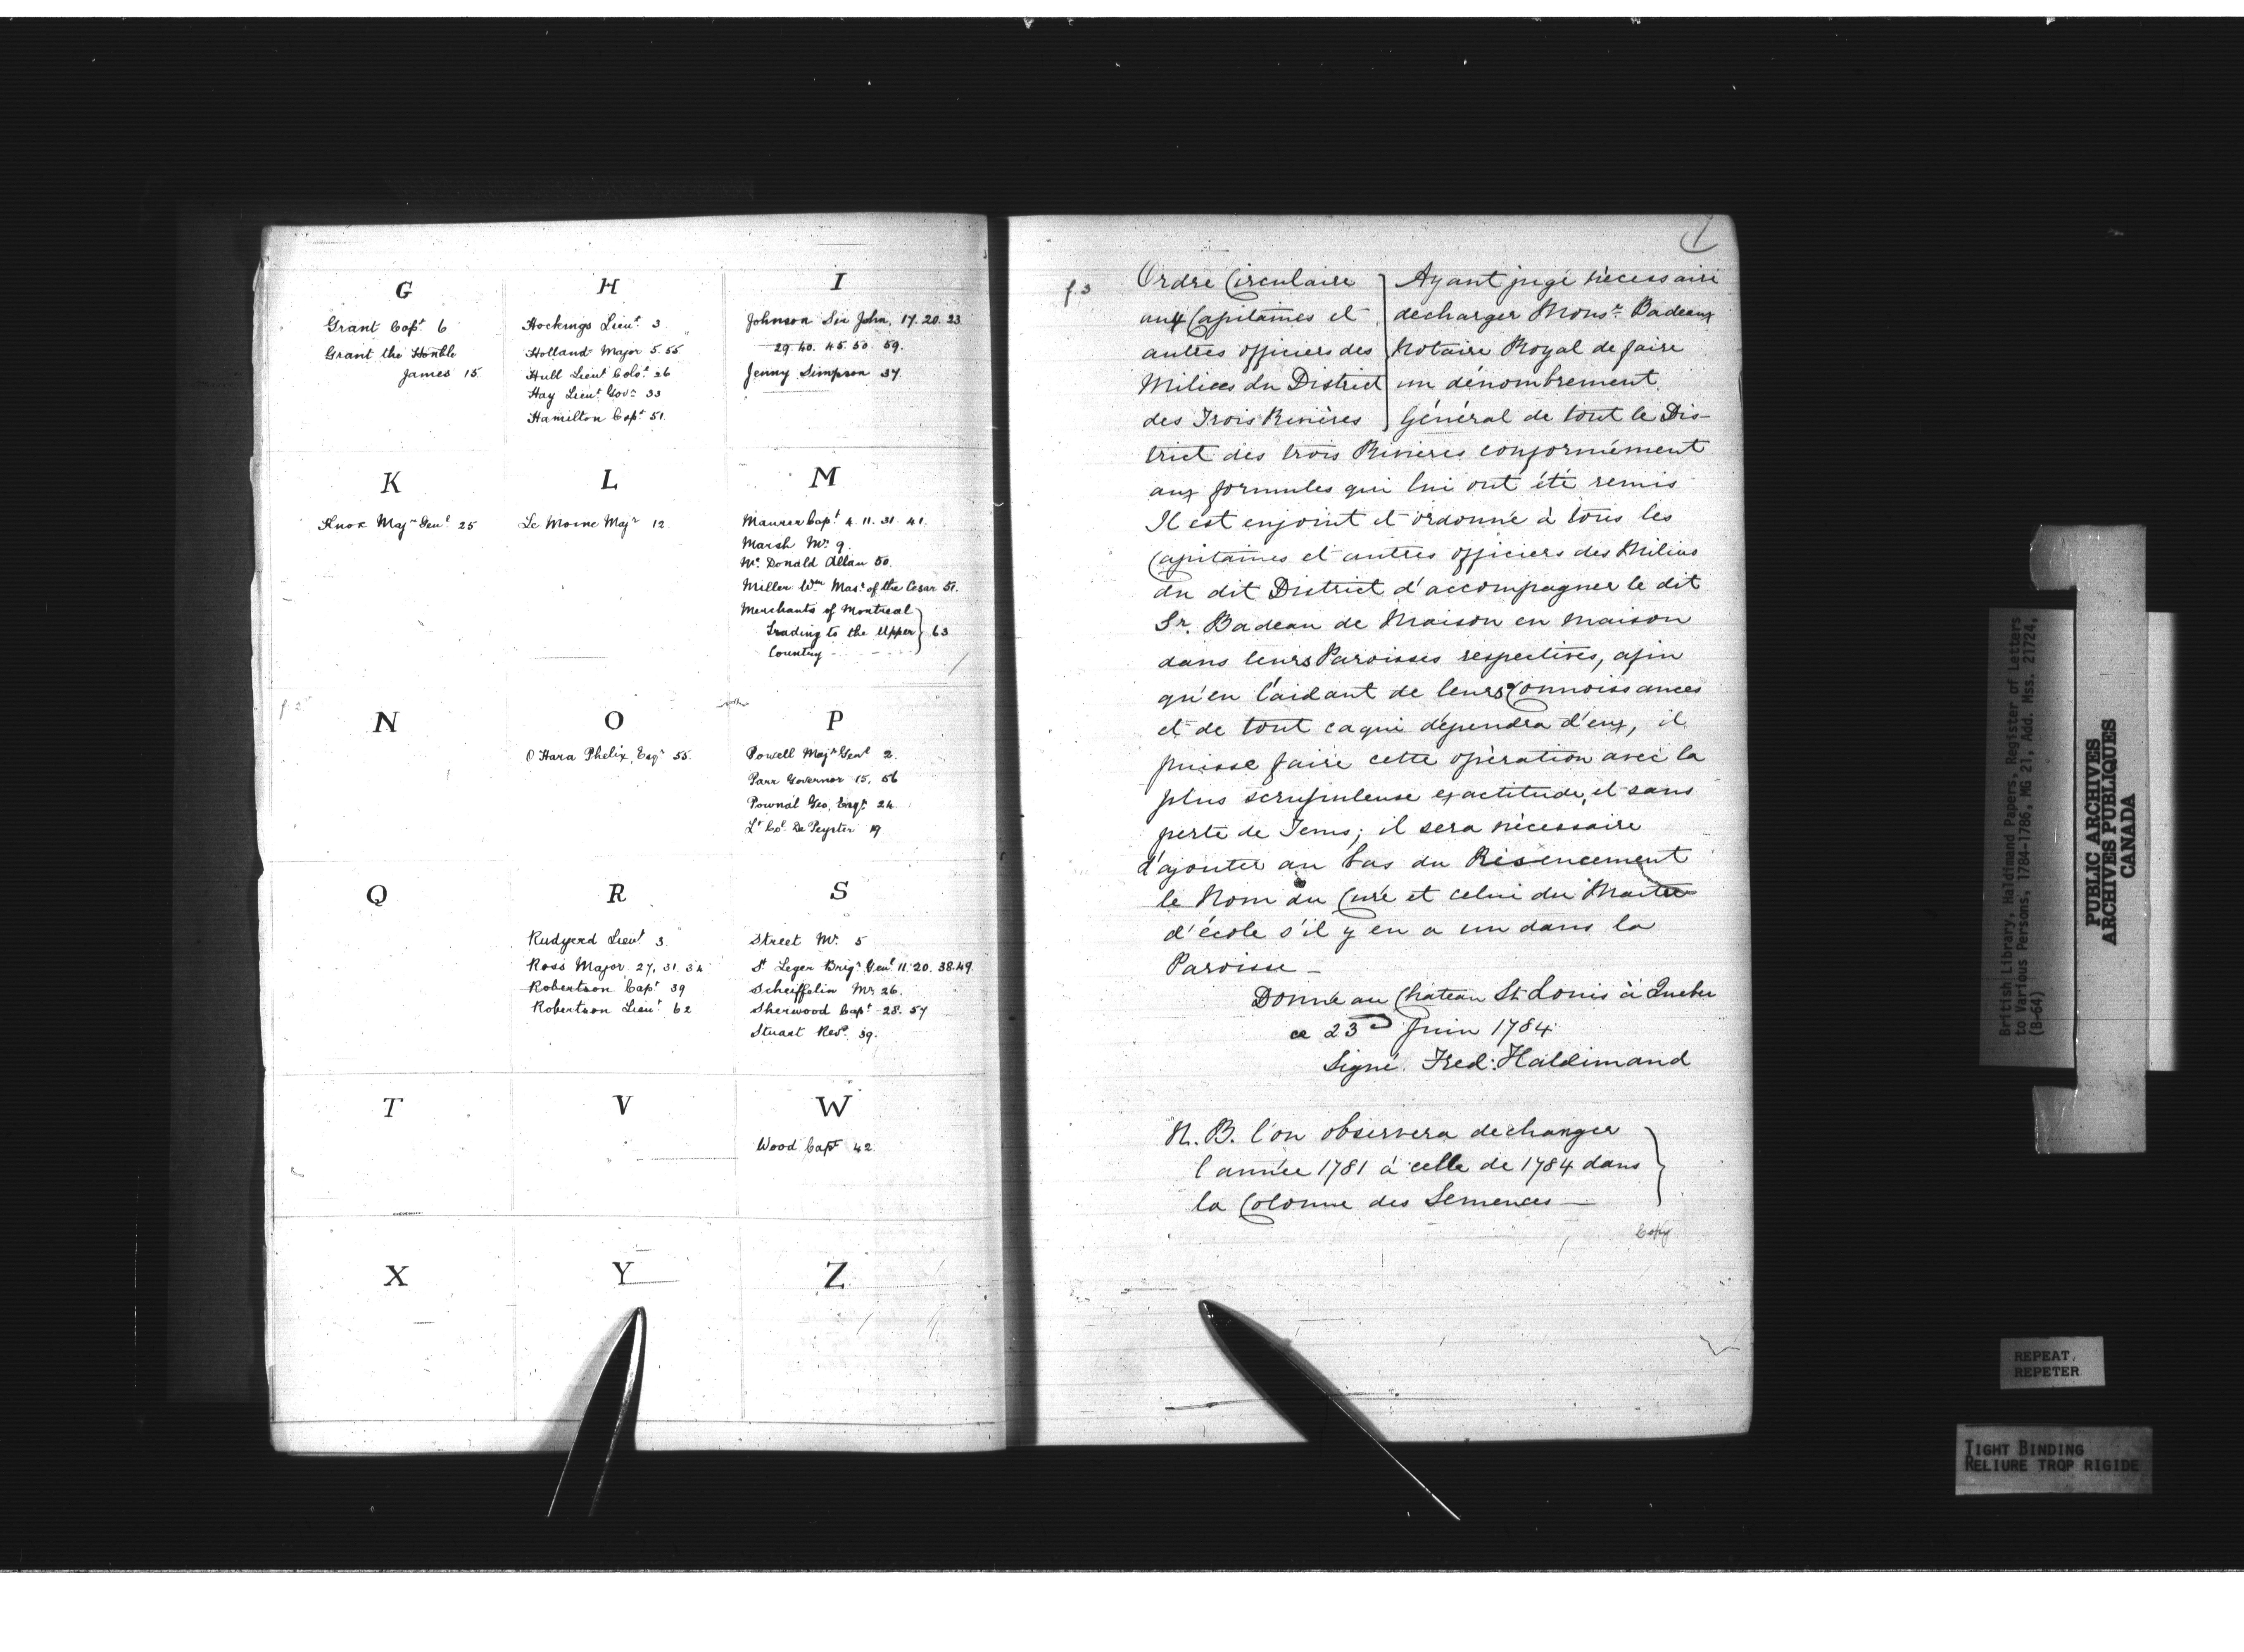 G
Grant Capt 6
Grant the Honble
James 15
H
Hockings Lieut 3
Holland Major 5.55
Hull Lieut Colo: 26
Hay Lieut Govr 33
Hamilton Capt 51.
I
Johnson Sir John, 17. 20. 23
29. 40. 45. 50. 59.
Jenny Simpson 37.
K
Knox Majr Genl 25
L
Le Moine Majr 12
M
Maurer Capt 4. 11. 31. 41.
Marsh Mr 9.
Mc Donald Allan 50.
Miller Wm Masr of the Cesar 51.
Merchants of Montreal
Trading to the Upper 63
Country
N
O
O Hara Phelix, Esqr 55.
P
Powell Majr Genl 2.
Parr Governor 15, 56
Pownal Geo, Esqr 24.
Lt Col. De Peyster 19
Q
R
Rudyerd Lieut 3.
Ross Major 27, 31. 34
Robertson Capt 39
Robertson Lieut 62
S
Street Mr 5
St Leger Brigr Genl 11. 20. 38. 49.
Scheiffelin Mr 26.
Sherwood Capt 28. 57
Stuart Revd 39.
T
V
W
Wood Capt 42.
X
Y
Z
1
f. 3
Ordre Circulaire
aux Capitaines et
autres officiers des
Milices du District
des Trois Rivières
Ayant jugé nécessaire
decharger Monsr Badeaux
Notaire Royal de faire
un dénombrement
Général de tout le Dis-
trict des trois Rivières conformément
aux formules qui lui ont été remis
Il est enjoint et ordonné à tous les
Capitaines et autres officiers des Milices
du dit District d'accompagner le dit
Sr. Badeau de Maison en Maison
dans leurs Paroisses respectives, afin
qu'en l'aidant de leurs Connoissances
et de tout ca qui dépendra d'eux, il
puisse faire cette opération avec la
plus scrupuleuse exactitude, et sans
perte de Tems; il sera nécessaire
d'ajouter au bas du Résencement
le Nom du Curé et celui du Maitre
d'école s'il y en a un dans la
Paroisse -
Donné au Chateau St Louis à Quebec
ce 23d Juin 1784
Signé. Fred: Haldimand
N. B. l'on observera de changer
l'année 1781 à celle de 1784 dans
la Colonne des Semences —
Copy
British Library, Haldimand Papers, Register of Letters
to Various Persons, 1784-1786, MG 21, Add. Mss. 21724,
(B-64)
PUBLIC ARCHIVES
ARCHIVES PUBLIQUES
CANADA
REPEAT.
REPETER
TIGHT BINDING
RELIURE TROP RIGIDE